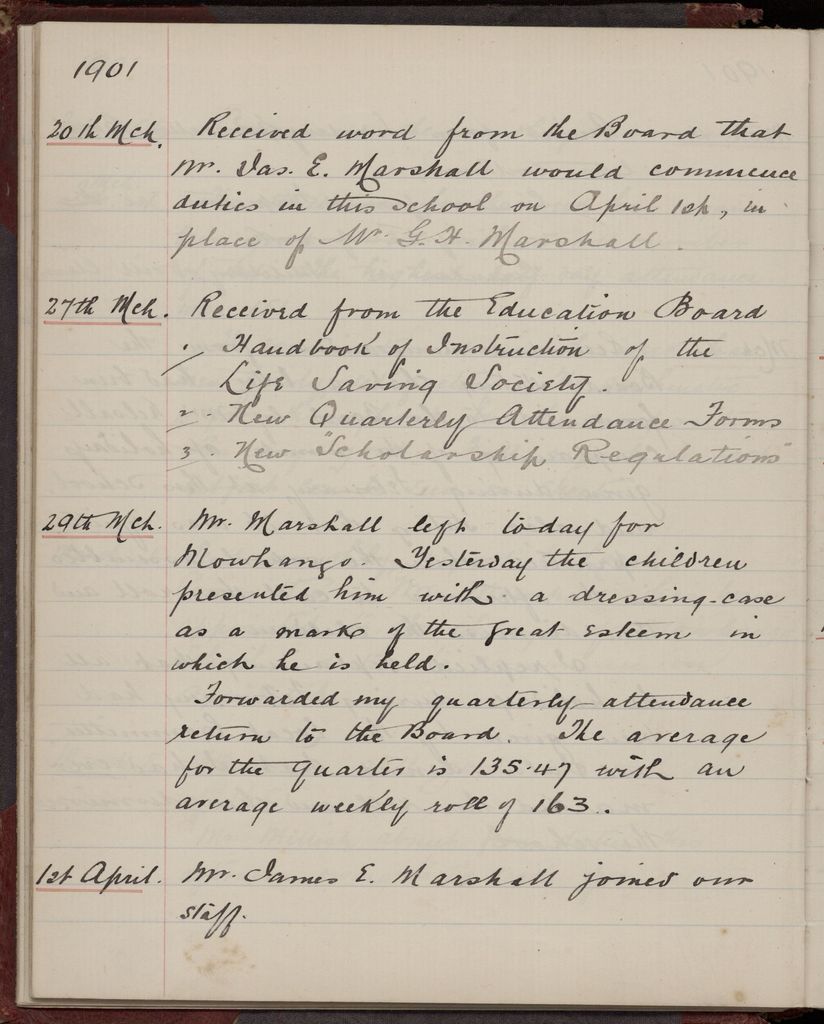 1901
20th Mch. Received word from the Board that
Mr. Jas. E. Marshall would commence
duties in this school on April 1st, in
place of Mr. G. H. Marshall.
27th Mch. Received from the Education Board
1. Handbook of Instruction of the
Life Saving Society.
2. New Quarterly Attendance Forms
3. New "Scholarship Regulations"
29th Mch. Mr. Marshall left today for
Mowhango. Yesterday the children
presented him with a dressing-case
as a mark of the great esteem in
which he is held.
Forwarded my quarterly attendance
return to the Board. The average
for the quarter is 135.47 with an
average weekly roll of 163.
1st April. Mr. James E. Marshall joined our
staff.